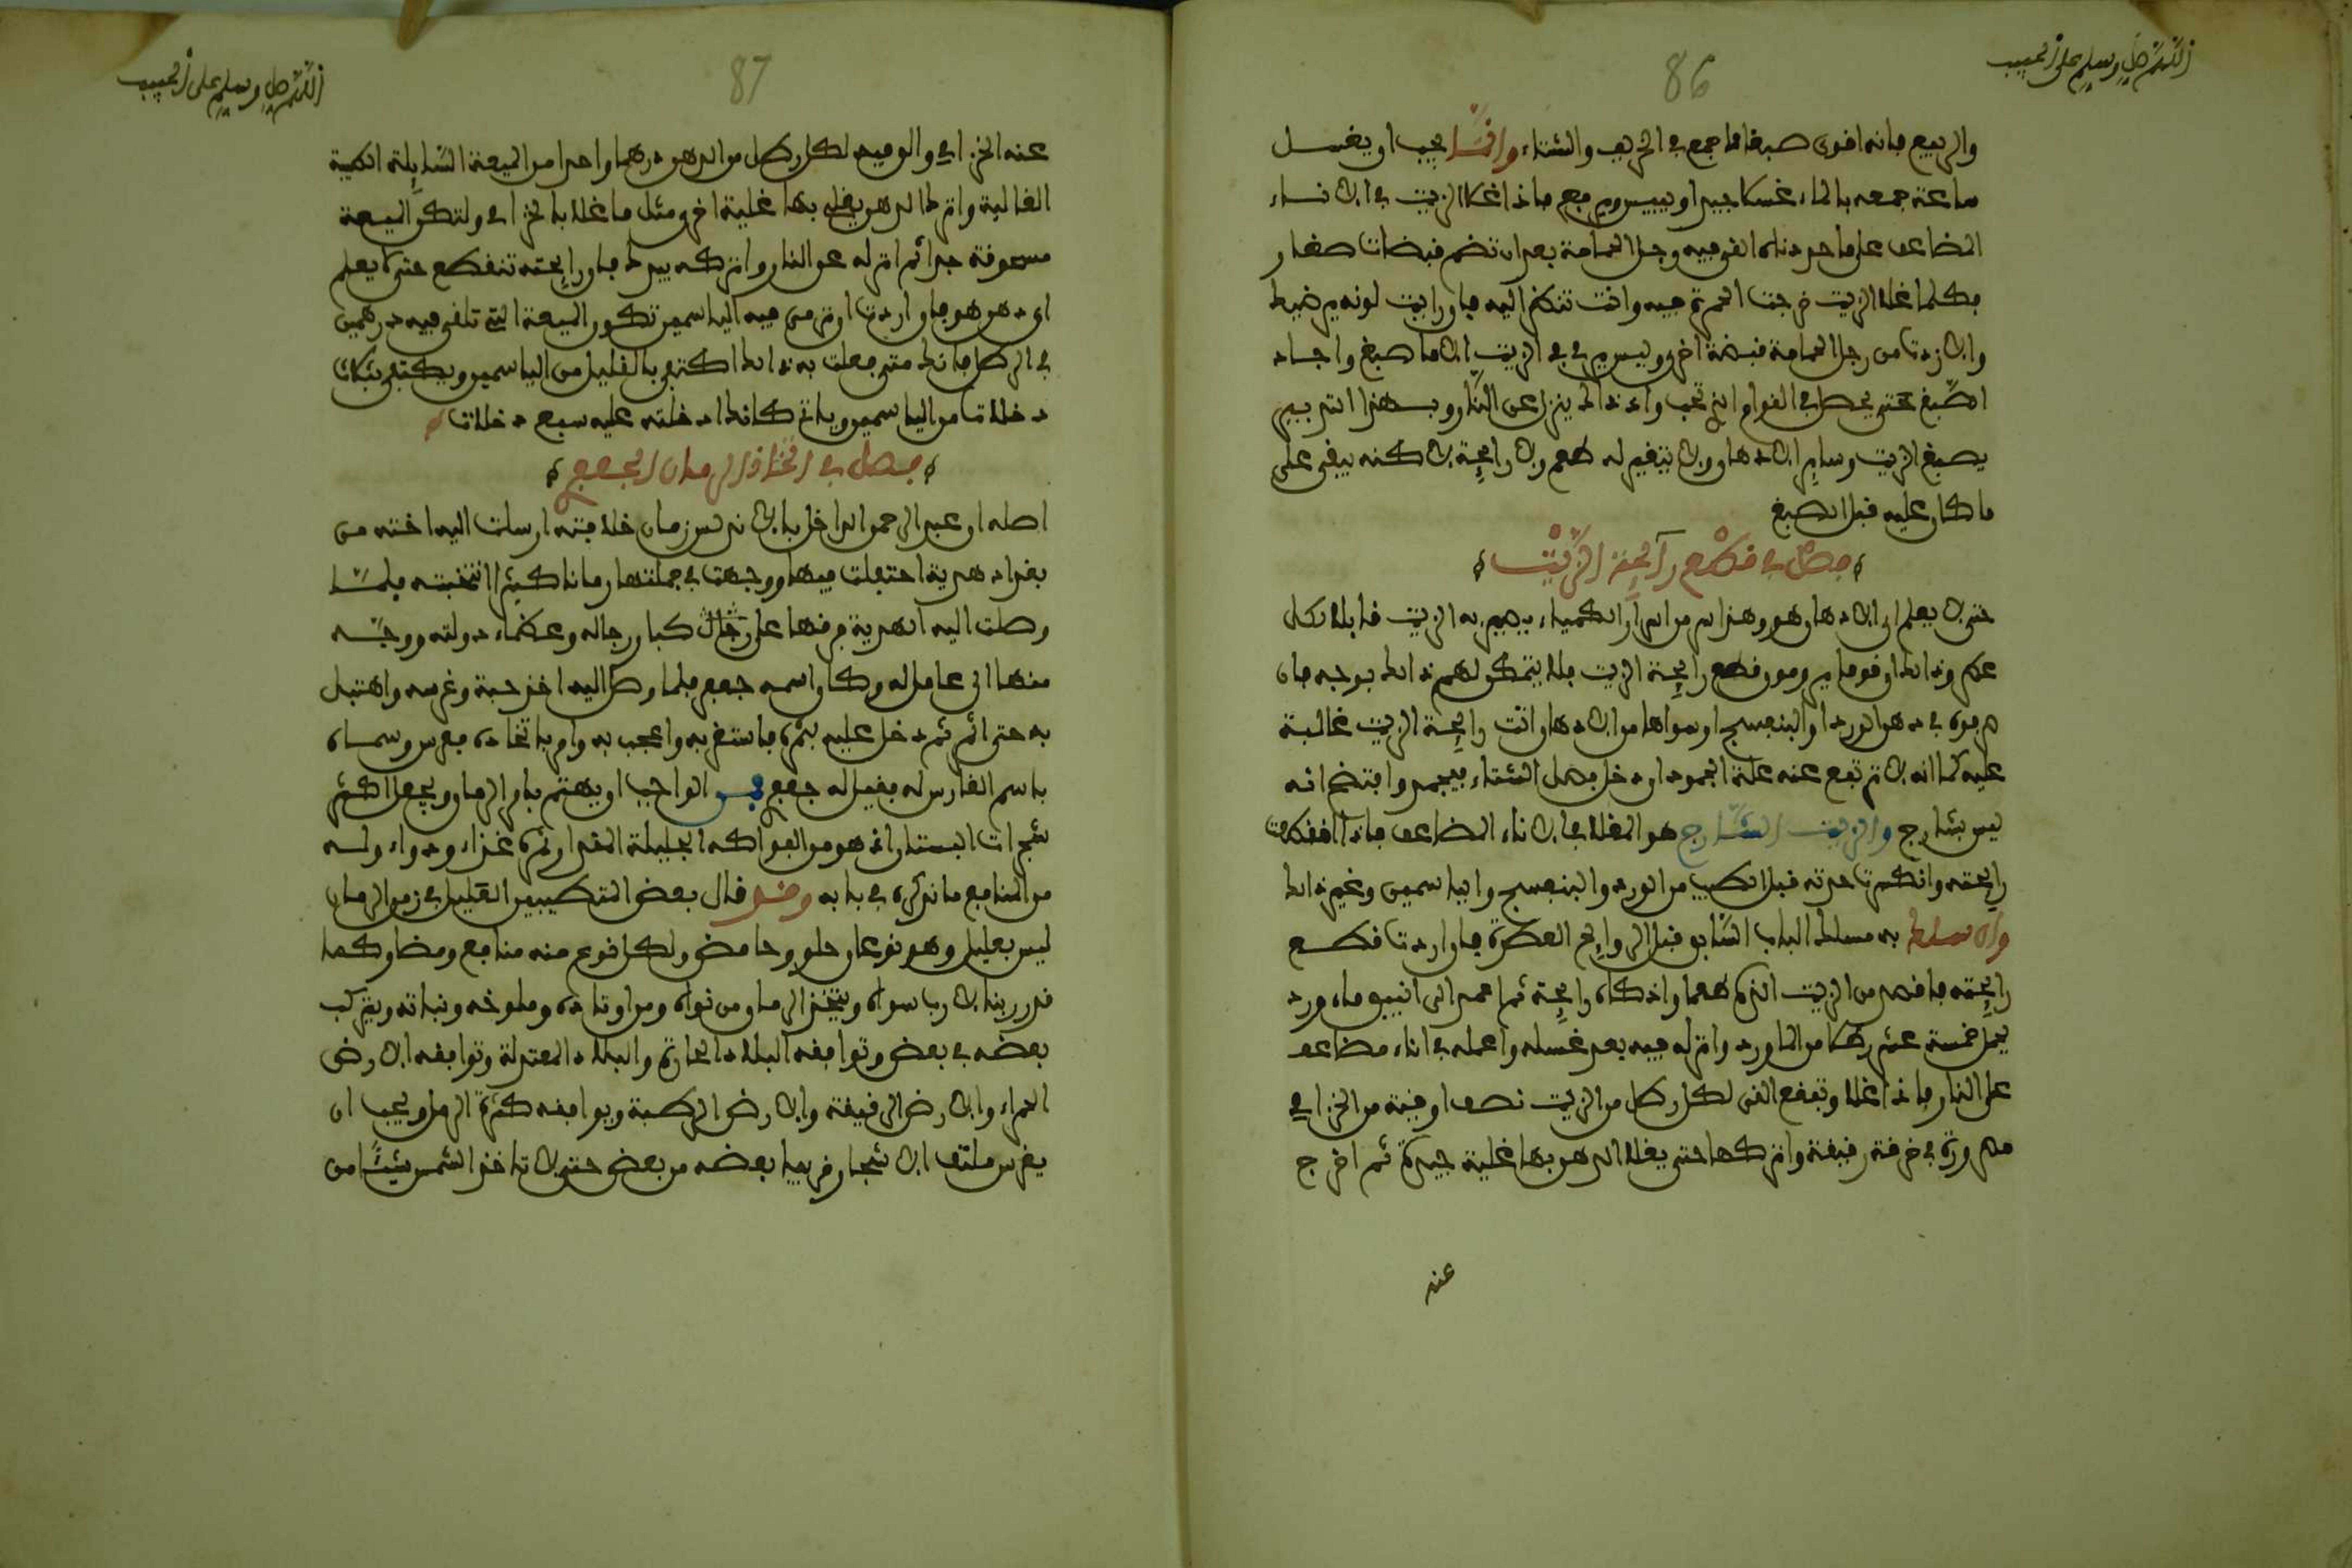 اللهم صل وسلم على الحبيب
86
والربيع فإنه اقوى صبغا مما جمع في الخريف والشتاء وايضًا يجب ان يغسل
ساعة جمعه بالماء غسلا جيدا وييبس ويرفع فاذا غلا الزيت في الاناء
المضاعف على ما حددناه القي فيه رجل الحمامة بعد ان تضم قبضات صغار
فكلما غلا الزيت خرجت الحمرة فيه وانت تنظر اليه فان رايت لونه يرضيك
والا زدت من رجل الحمامة قبضة اخرى وليس يرى في الزيت الا ما صبغ واجاد
الصبغ حتى يحصل في القوام الذي تحب وعند ذلك ينزل عن النار وبهذا التدبير
يصبغ الزيت وساير الادهان ولا يتغير له طعم ولا رايحة لاكنه يبقى على
ما كان عليه قبل الصبغ
فصل في قطع رآيحة الزيت
حتى لا يعلم اي الادهان هو وهذا سر من اسرار الكمياء يصير به الزيت قابلا لكل
عطر وذلك ان قوما يرومون قطع رايحة الزيت فلا يتمكن لهم ذلك بوجه فان
صرفوه في دهن الورد او البنفسج او سواها من الادهان اتت رايحة الزيت غالبة
عليه كما انه لا ترتفع عنه علة الجمود ان دخل فصل الشتاء فيجمد وافتضح انه
ليس بشارج والزيت الشارج هو المغلا في الاناء المضاعف فاذا انقطعت
رايحته وانكسرت حدته قبل الطيب من الورد والبنفسج والياسمين وغير ذلك
وان سلك به مسلك الباب السابق قبل الروايح العطرة فان اردت قطع
رايحته فاقصد من الزيت اطراه طعما واذكاه رايحة ثم اعمد الى انبيق ماء ورد
يحمل خمسة عشر رطلا من الماورد واتركه فيه بعد غسله واعمله في اناء مضاعف
على النار فاذا غلا وتقطع القي لكل رطل من الزيت نصف اوقية من الخزامى
مصرورة في خرقة رقيقة واتركها حتى يغلا الدهن بها غلية جيدة ثم اخرج
عنه
اللهم صل وسلم على الحبيب
87
عنه الخزامى والق فيه لكل رطل من الدهن درهما واحدا من الميعة السايلة الطيبة
الغالية واترك الدهن يغلي بها غلية اخرى مثل ما غلا بالخزامى ولتكن الميعة
مسحوقة جدا ثم انزله عن النار واتركه يبرد فان رايحته تنقطع حتى لا يعلم
اي دهن هو فان اردت ان ترمي فيه الياسمين تكون الميعة التي تلقى فيه درهمين
في الرطل فانك متى فعلت به ذلك اكتفى بالقليل من الياسمين ويكتفي بثلاث
دخلات من الياسمين وياتي كانك ادخلته عليه سبع دخلات
فصل في اتخاذ الرمان الجعفري
اصله ان عبد الرحمن الداخل بالاندلس زمان خلافته ارسلت اليه اخته من
بغداد هدية احتفلت فيها ووجهت في جملتها رمانا كثيرا انتخبته فلما
وصلت اليه الهدية فرقها على رجال كبار رجاله وعظماء دولته ووجه
منها الى عامل له وكان اسمه جعفر فلما وصل اليه اخذ حبة وغرسه واهتبل
به حتى اثمر ثم دخل عليه بثمرة فاستغربه واعجب به وامر باتخاذه فغرس وسماه
باسم الغارس له فقيل له جعفري فمن الواجب ان يهتم بامر الرمان ويجعل اكثر
شجرات البستان اذ هو من الفواكه الجليلة المقدار ثمره غذاء ودواء وله
من المنافع ما نذكره في بابه وقد قال بعض المتطببين القليل في زمن الرمان
ليس بعليل وهو نوعان حلو وحامض ولكل نوع منه منافع ومضار كما
قدر ربنا لا رب سواه ويتخذ الرمان من نواه ومن اوتاده وملوخه ونباته ويتركب
بعضه في بعض وتوافقه البلاد الحارة والبلاد المعتدلة وتوافقه الارض
الحمراء والارض الرقيقة والارض الرطبة ويوافقه كثرة الرمل ويجب ان
يغرس ملتف الاشجار قريبا بعضه من بعض حتى لا تاخذ الشمس شيئًا من